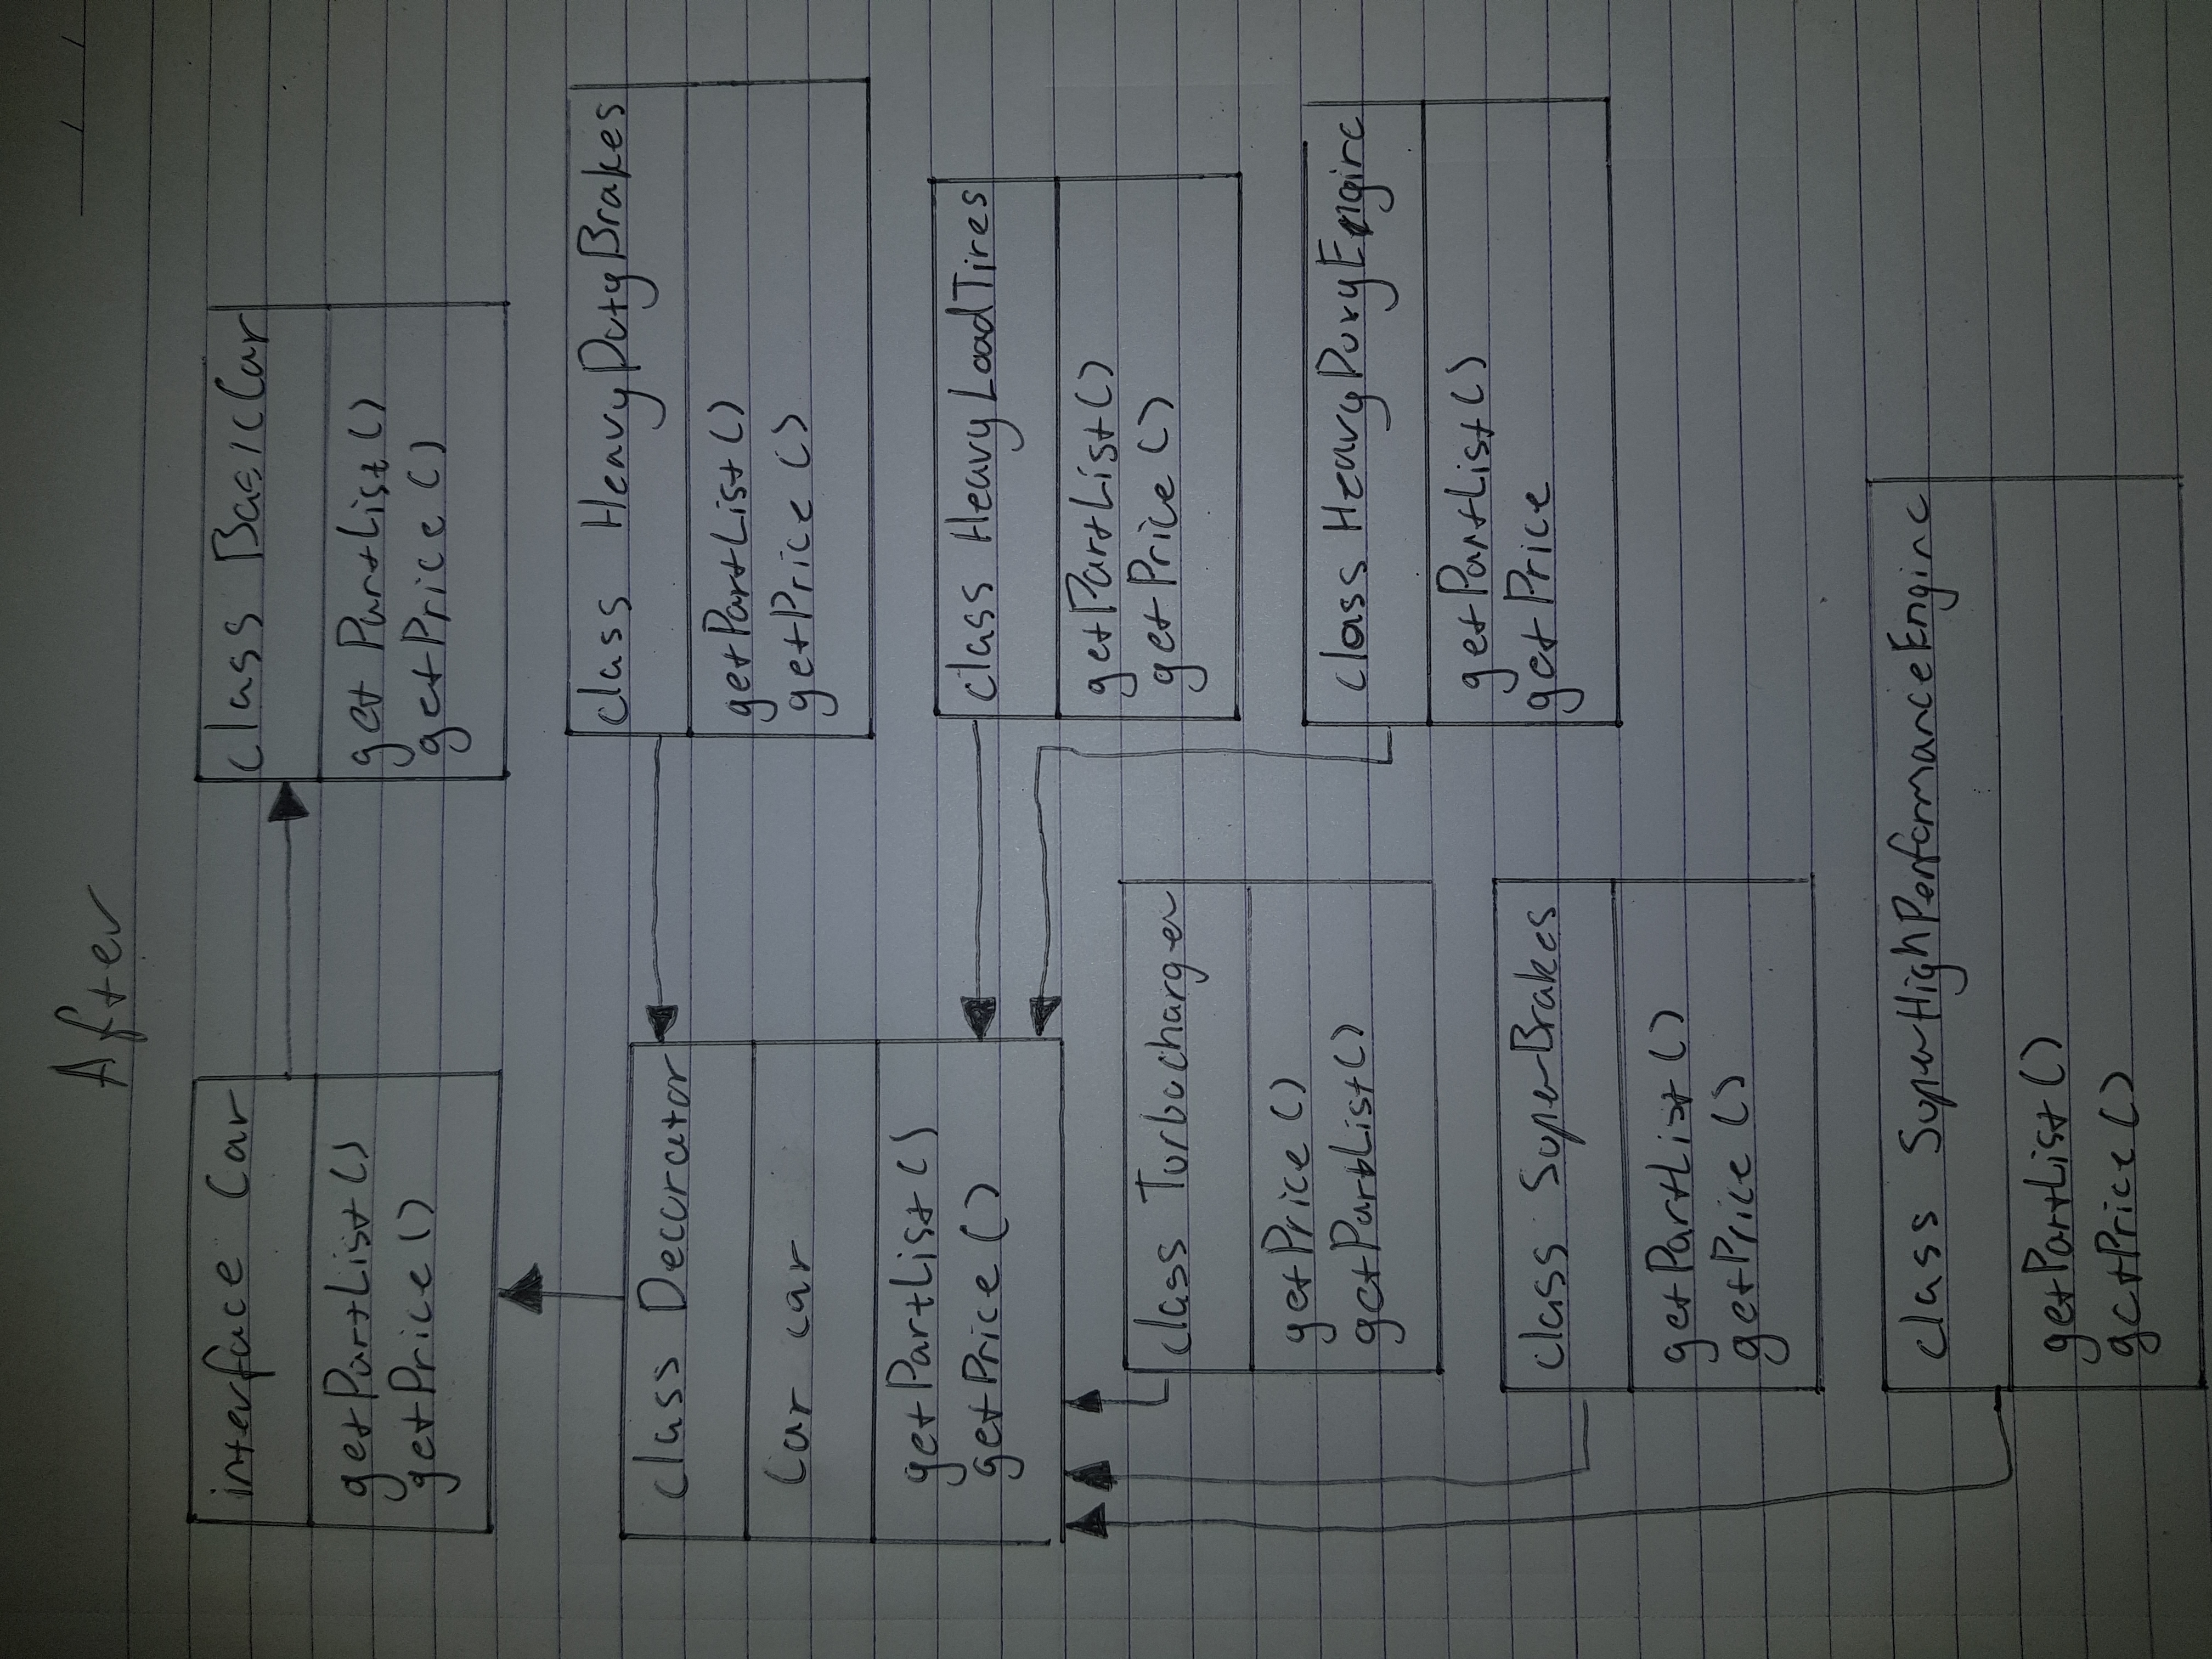 After
interface Car
getPartList()
getPrice()
class BasicCar
getPartList()
getPrice()
class Decorator
Car car
getPartList()
getPrice()
class HeavyDutyBrakes
getPartList()
getPrice()
class HeavyLoadTires
getPartList()
getPrice()
class Turbocharger
getPrice()
getPartList()
class HeavyDutyEngine
getPartList()
getPrice
class SuperBrakes
getPartList()
getPrice()
class SuperHighPerformanceEngine
getPartList()
getPrice()